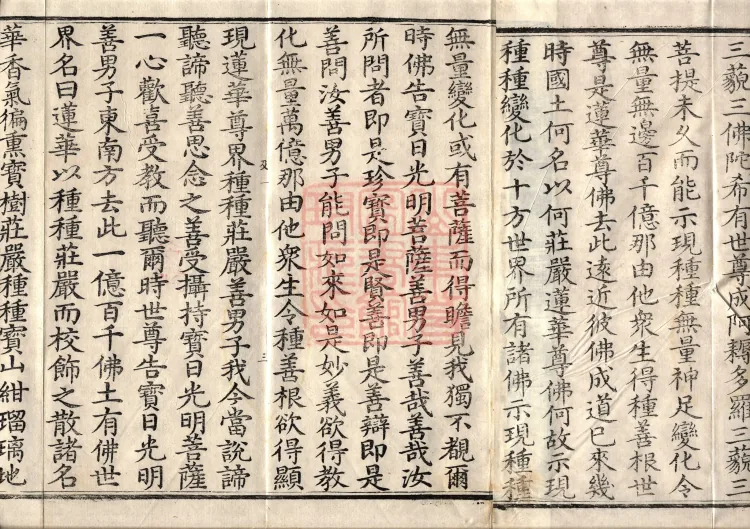 三藐三佛陀希有世尊成阿耨多羅三藐三
菩提未久而能示現種種無量神足變化令
無量無邊百千億那由他衆生得種善根世
尊是蓮華尊佛去此遠近彼佛成道已來幾
時國土何名以何莊嚴蓮華尊佛何故示現
種種變化於十方世界所有諸佛示現種種
無量變化或有菩薩而得瞻見我獨不覩爾
時佛告寶日光明菩薩善男子善哉善哉汝
所問者即是珍寶即是賢善即是善辯即是
善問汝善男子能問如來如是妙義欲得教
化無量萬億那由他衆生令種善根欲得顯
現蓮華尊界種種莊嚴善男子我今當說諦
聽諦聽善思念之善受攝持寶日光明菩薩
一心歡喜受教而聽爾時世尊告寶日光明
善男子東南方去此一億百千佛土有佛世
界名曰蓮華以種種莊嚴而校飾之散諸名
華香氣徧熏寶樹莊嚴種種寶山紺瑠璃地